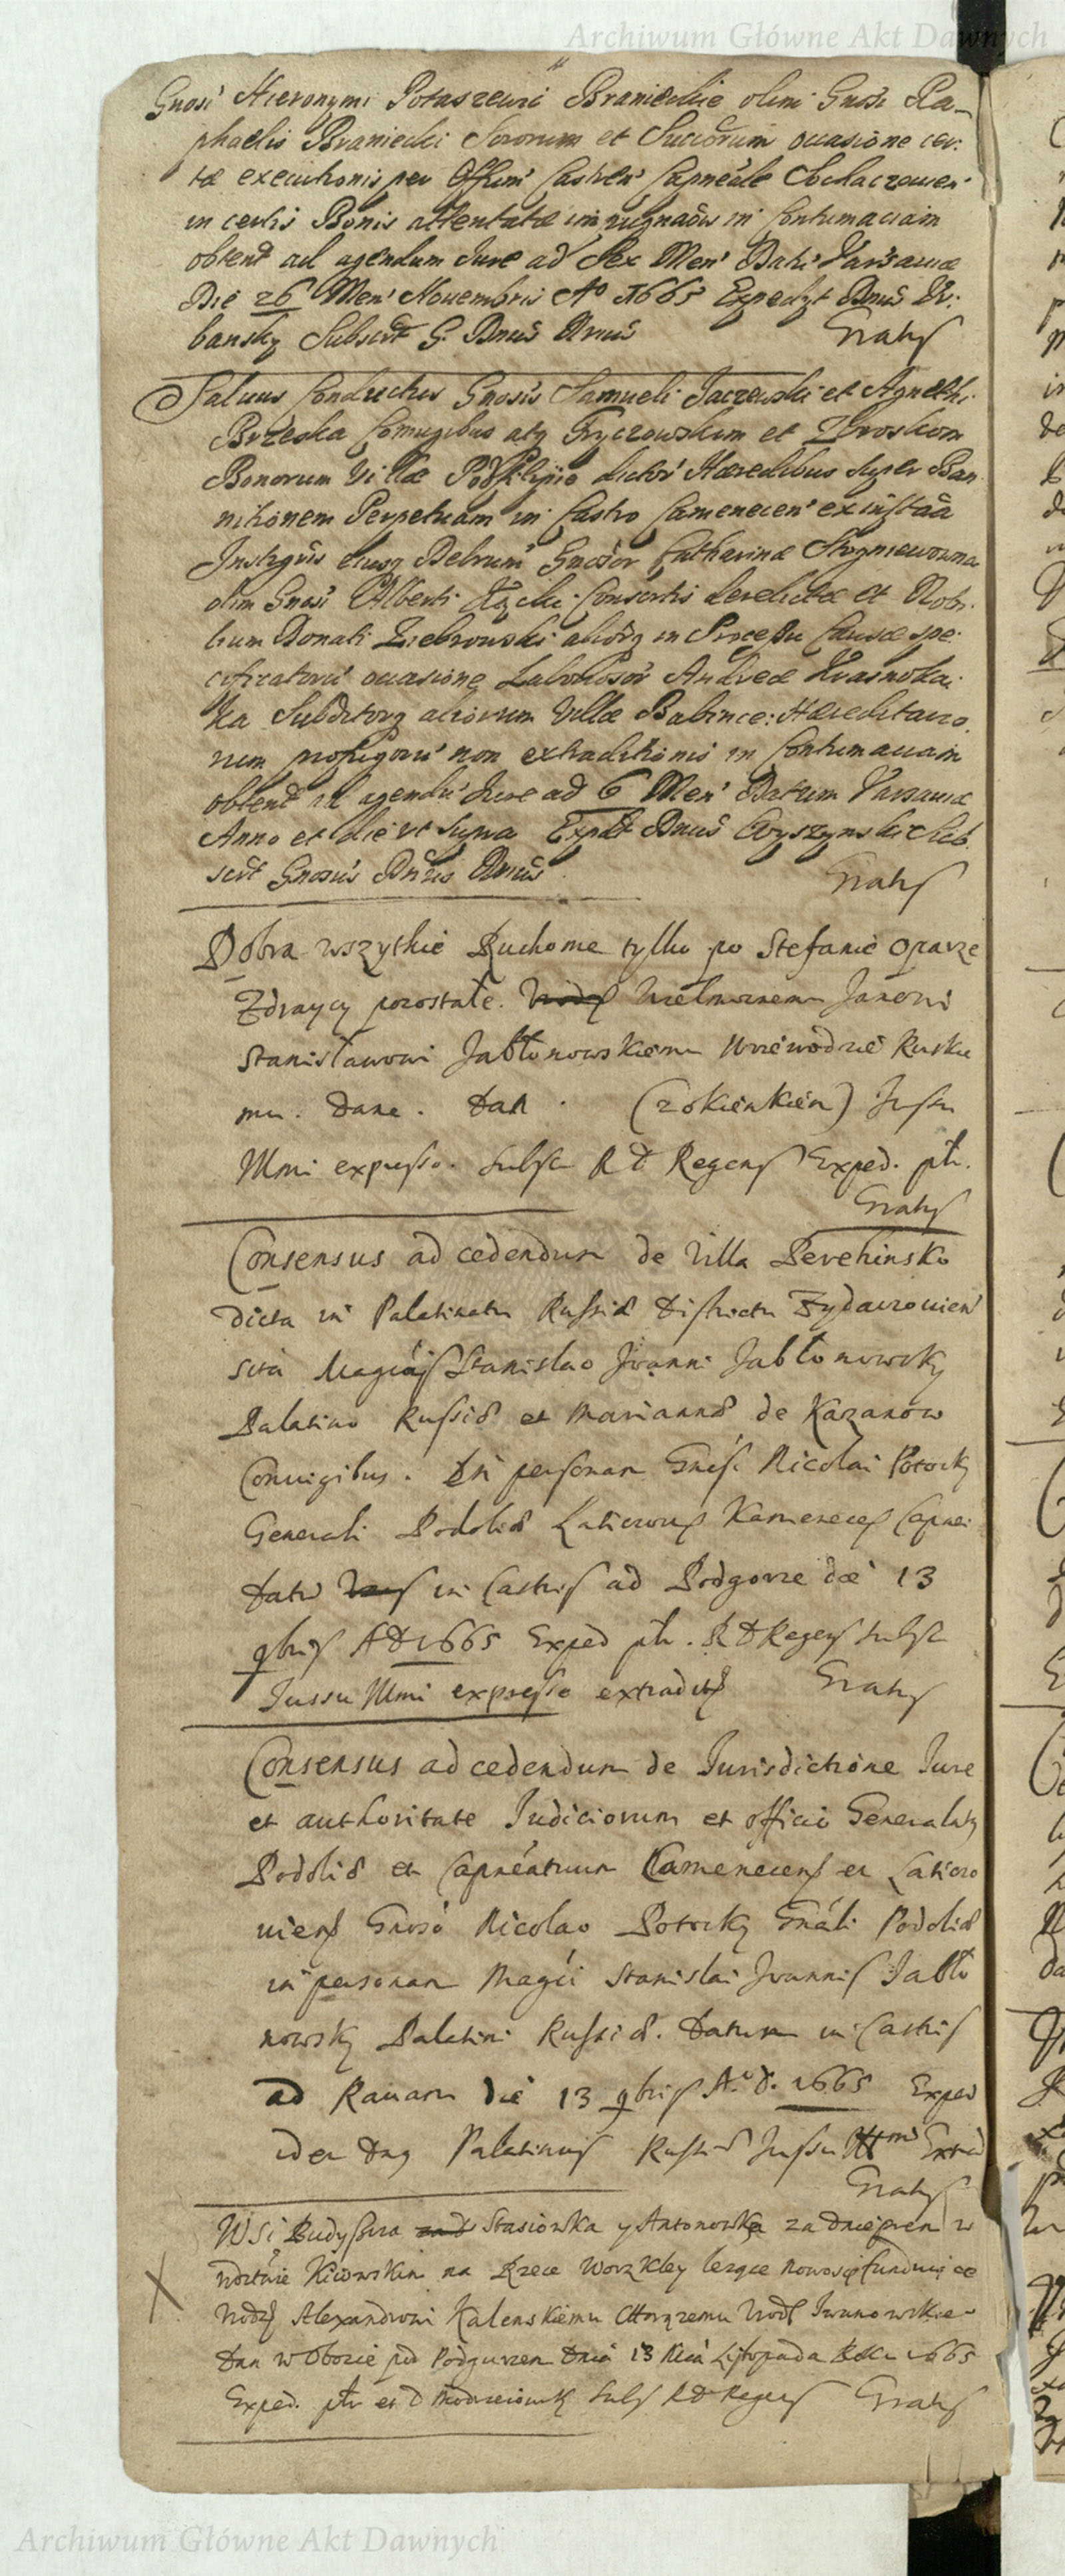 Archiwum Główne Akt Dawnych
Gnosi Hieronymi Potaszewi Branieckie olim Gnosi Ra-
phaelis Braniecki Sororum et Succorum occasione cer:
tæ executionis per Offium Castren Capneale Sochaczouien
in certis Bonis attentatæ in contumaciam
obtent ad agendum Jure ad Sex Men' Dat: Varsauiæ
Die 26 Men' Nouembris Aº 1665 Expedyt Dnus Ur:
bansky Subscrt G. Dnus Gratis
Saluus Conductus Gnosis Samueli Jaczewski et Agnethi
Brzeska Conugibus atq et Zbroskom
Bonorum Villæ dictor Hæredibus super Ban
nitionem Perpetuam in Castro Camenecen' ex instaa
Instigris eiusq Delrum Gnosor Catharinæ
olim Gnosi Alberti Consortis derelictæ et Nobi
lium Donati Ziebrowski aliorq in Processu Causæ spe:
cificatoru occasione Laboriosor Andreæ Krasnosla:
ka Subditorq aliorum Villæ Babince: Hæreditario
rum profugoru non extraditionis in Contumaciam
obtent ad agendu Jure ad 6 Men' Datum Varsauiæ
Anno et die vt supra Expdt Dnus Cyszynski Sub
scrt Gnosus Gratis
Dobra wszytkie Ruchome tylko po Stefanie Oparze
Zdraycy pozostałe. Wielmoznemu Janowi
Stanisławowi Jabłonowskiemu Woiewodzie Rusku
mu. Dane. Dan . (z okienkien) Jussu
Illmi expresso. Subst R D Regens Exped. ptr.
Gratis
Consensus ad cedendum de Villa Perehinsko
dicta in Palatinatu Russiæ Districtu Zydaczouien
sita Magcis Stanislao Joanni Jabłonowsky
Palatino Russiæ et Mariannæ de Kazanow
Coniugibus. In personam Gnosi Nicolai Potocky
Generali Podoliæ Laticzouien Kamenecen Capnei
Datu in Castris ad Podgorze die 13
9bris A D 1665 Exped ptr. R D Regens Subst
Jussu Illmi expresso extraditus Gratis
Consensus ad cedendum de Jurisdictione Jure
et authoritate Judiciorum et officio Generalatus
Podoliæ et Capneatuum Camenecens et Laticzo
uiens Gnoso Nicolao Potocky Gnali Podoliæ
in personam Magci Stanislai Joannis Jabło
nowsky Palatini Russiæ. Datum in Castris
ad Rauam die 13 9bris A.º d. 1665 Exped
idem Dns Palatinus Russiæ Jussu Illmi Extrad
Gratis
Wsi Budyszcza Stasiowka y Antonowka za Dnieprem w
wdztwie Kiiowskim na Rzece Worzkley lezące nowo się funduiące
Urodz Alexandrowi Kalenskiemu Chorązemu Urodl Iwanowskie
Dan w Obozie pod Podgurzem Dnia 13 Mca Listopada Roku 1665
Exped. ptr et D Subs R D Regens Gratis
Archiwum Główne Akt Dawnych